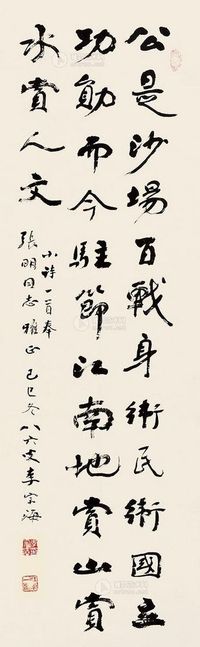 公是沙場百戰身衛民衛國立
功勛而今駐節江南地賞山賞
水賞人文
小詩一首奉
張明同志雅正 己巳冬 八六叟李宗海